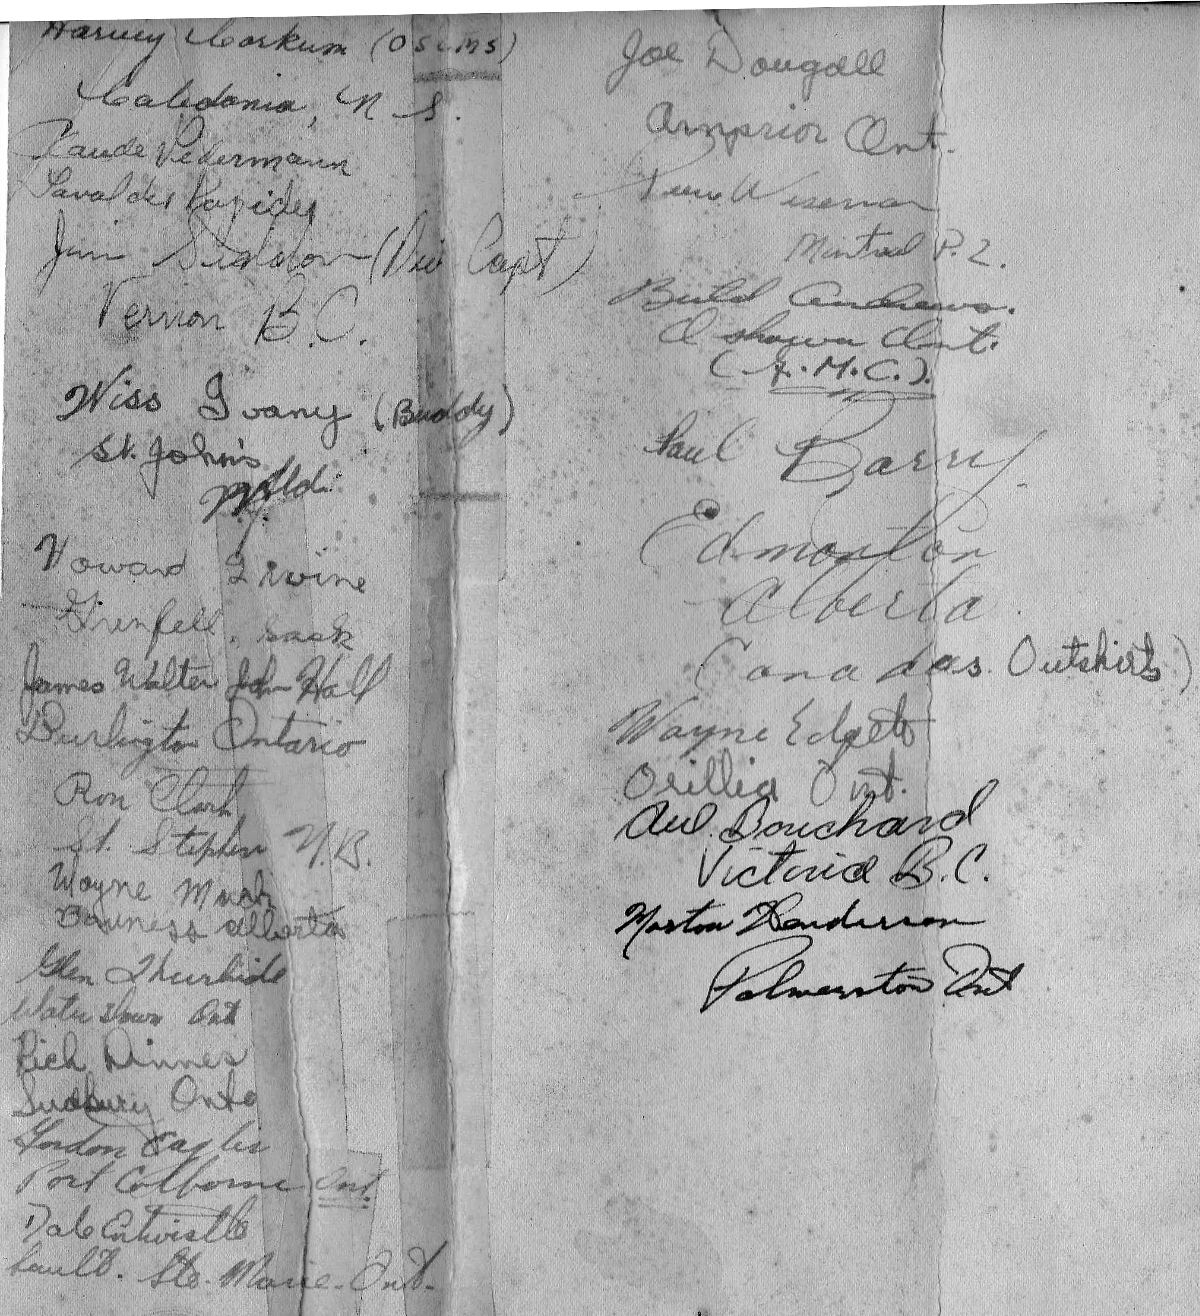 Harvey Corkum (OSLMS)
Caledonia, N. S.
Claude Pedermann
Laval des Rapides
Jim (Div Capt)
Vernon B.C.
Wiss Ivany (Buddy)
St. John's
Nfld.
Howard Irvine
Grenfell, Sask
James Walter John Hall
Burlington Ontario
Ron Clark
St. Stephen N.B.
Wayne
Bowness Alberta
Glen
Waterdown Ont
Rich Dinnes
Sudbury Ont
Gordon Eagles
Port Colborne Ont.
Dale Entwistle
Sault. Ste. Marie. Ont.
Joe Dougall
Arnprior Ont.
Wiseman
Montreal P.Q.
Andrews.
Oshawa Ont.
Paul Barry
Edmonton
Alberta
(Canadas. Outskirts)
Wayne Edgeto
Orillia Ont.
Bouchard
Victoria B.C.
Morton Henderson
Palmerston Ont